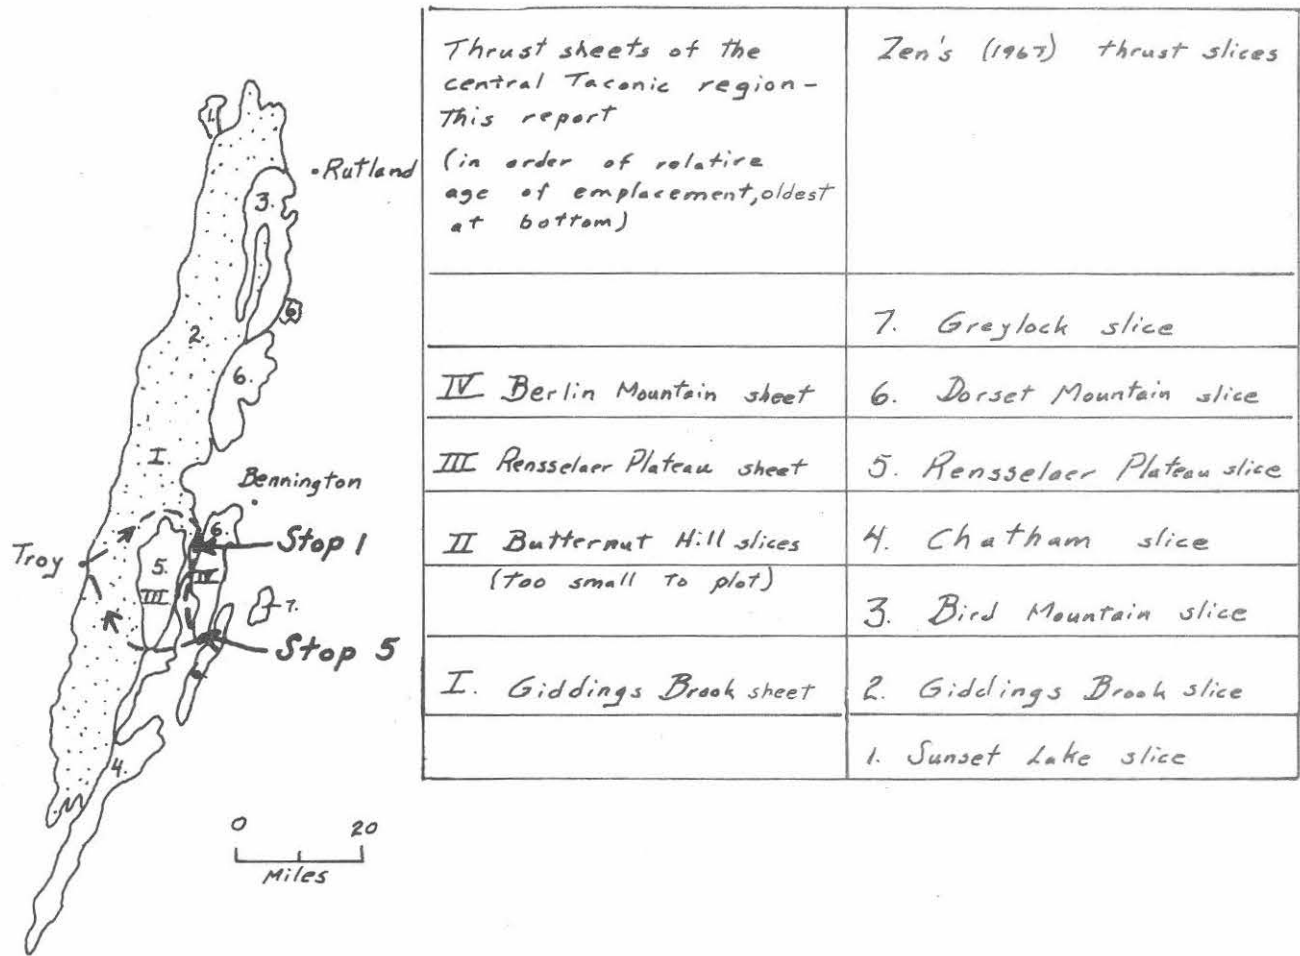 1.
Rutland
3.
6
2.
6.
I
Bennington
Troy
6
Stop 1
5.
III
IV
7.
Stop 5
6.
4.
0 20
Miles
Thrust sheets of the
central Taconic region -
This report
(in order of relative
age of emplacement, oldest
at bottom)
Zen's (1967) thrust slices
7. Greylock slice
IV Berlin Mountain sheet
6. Dorset Mountain slice
III Rensselaer Plateau sheet
5. Rensselaer Plateau slice
II Butternut Hill slices
(too small to plot)
4. Chatham slice
3. Bird Mountain slice
I. Giddings Brook sheet
2. Giddings Brook slice
1. Sunset Lake slice